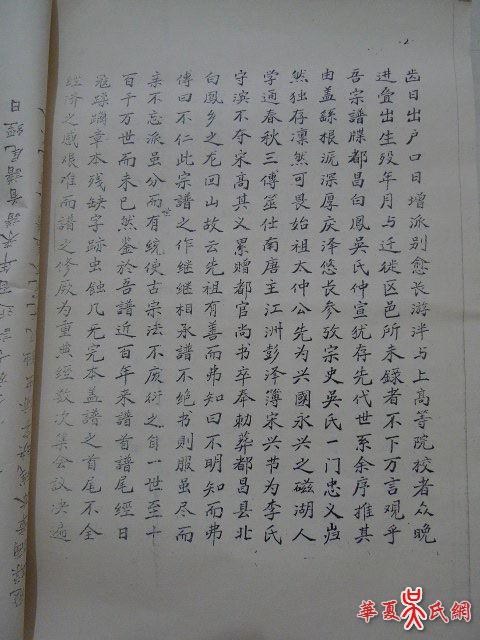 齿日出户口日增派别愈长游泮与上高等院校者众晚
进叠出生殁年月与迁徙区邑所未録者不下万言观乎
吾宗譜牒都昌白鳳吳氏仲宣犹存先代世系余序推其
由盖綠根派深厚庆泽悠长参攷宗史吳氏一門忠义岿
然独存凛然可畏始祖太仲公先为兴國永兴之磁湖人
学通春秋三傳筮仕南唐主江洲彭泽簿宋兴节为李氏
守滨不夺宋高其义累赠都官尚书卒奉勅葬都昌县北
白鳳乡之龙回山故云先祖有善而弗知曰不明知而弗
傳曰不仁此宗譜之作继继相承譜不绝书則服虽尽而
亲不忘派虽分而有統使古宗法不废衍之自一世至十
百千万世而未已然鉴於吾譜近百年来譜首譜尾經日
飛蹂躏章本残缺字跡虫蝕几无完本盖譜之首尾不全
經济之感艰难而譜之修厥为重典經数次集会议决遍
華夏吴氏網